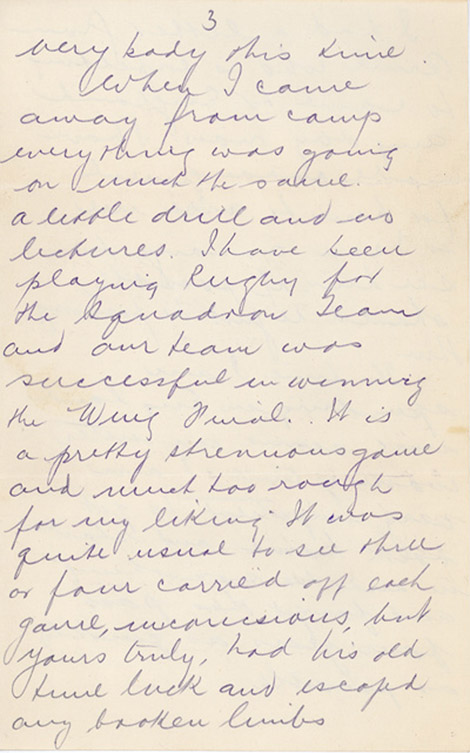 3
very body this time.
When I came
away from camp
everything was going
on much the same.
a little drill and no
lectures. I have been
playing Rugby for
the Squadron Team
and our team was
successful in winning
the Wing Final. It is
a pretty strenuous game
and much too rough
for my liking. It was
quite usual to see three
or four carried off each
game, unconcisious, but
yours truly, had his old
time luck and escaped
any broken limbs